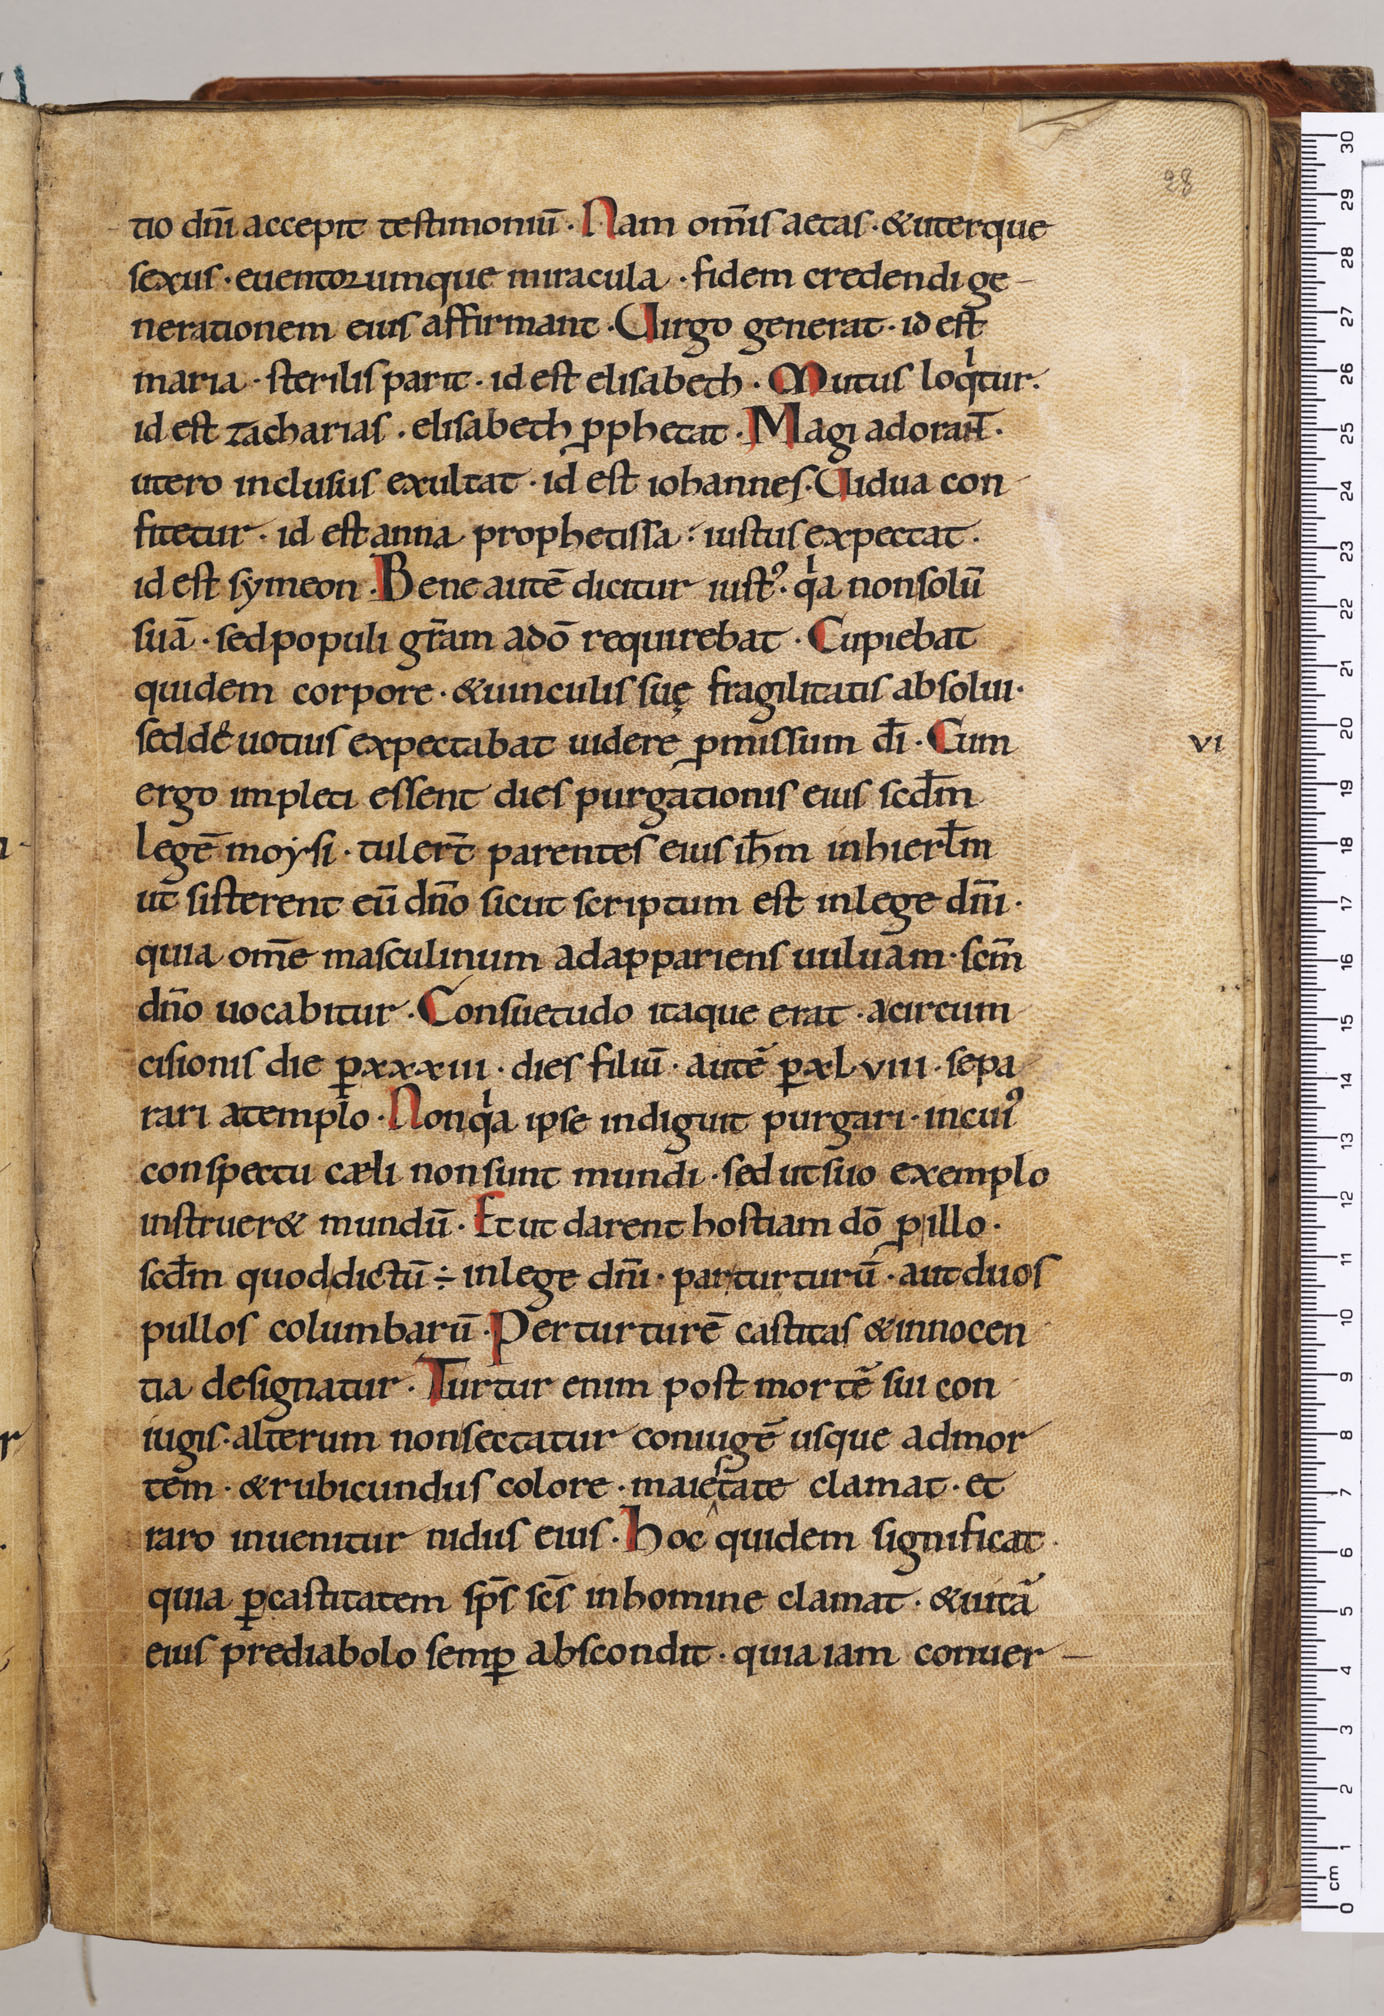 28
tio dñi accepit testimoniū · Nam om̄is aetas · &uterque
sexus · euentorumque miracula · fidem credendi ge-
nerationem eius affirmant · Uirgo generat · id est
maria · sterilis parit · id est elisabeth · Mutus loqͥtur ·
id est zacharias · elisabeth ꝓphetat · Magi adorant̄ ·
utero inclusus exultat · id est iohannes · Uidua con
fitetur · id est anna prophetissa · iustus expectat ·
id est symeon · Bene autē dicitur iustꝰ · qͥa non solū
suā · sed populi gr̄am a dō requirebat · Cupiebat
quidem corpore · &uinculis suę fragilitatis absolui ·
sed deuotius expectabat uidere ꝓmissum dī · Cum
vi
ergo impleti essent dies purgationis eius scđm
legē moysi · tuler̄t parentes eius ih̄m in hierl̄m
ut sisterent eū dño sicut scriptum est in lege dñi ·
quia om̄e masculinum adappariens uuluam · scm̄
dño uocabitur · Consuetudo itaque erat · a circum
cisionis die ꝑ xxxiii · dies filiū · autē ꝑ xl·viii · sepa
rari a templo · Non qͥa ipse indiguit purgari · in cuiꝰ
conspectu cæli non sunt mundi · sed ut suo exemplo
instruer& mundū · Et ut darent hostiam dō ꝓ illo ·
scđm quod dictū ÷ in lege dñi · par turturū · aut duos
pullos columbarū · Per turturē castitas &innocen
tia designatur · Turtur enim post mortē sui con
iugis · alterum non sectatur coniugē usque ad mor
tem · &rubicundus colore · maiestate clamat · et
raro inuenitur nidus eius · Hoc quidem significat ·
quia ꝑ castitatem sp̄s sc̄s in homine clamat · &uitā
eius pre diabolo semꝑ abscondit · quia iam conuer-